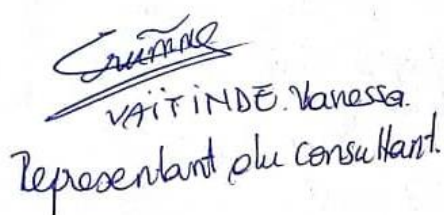 VAÏTINDE. Vanessa.
Representant du consultant.